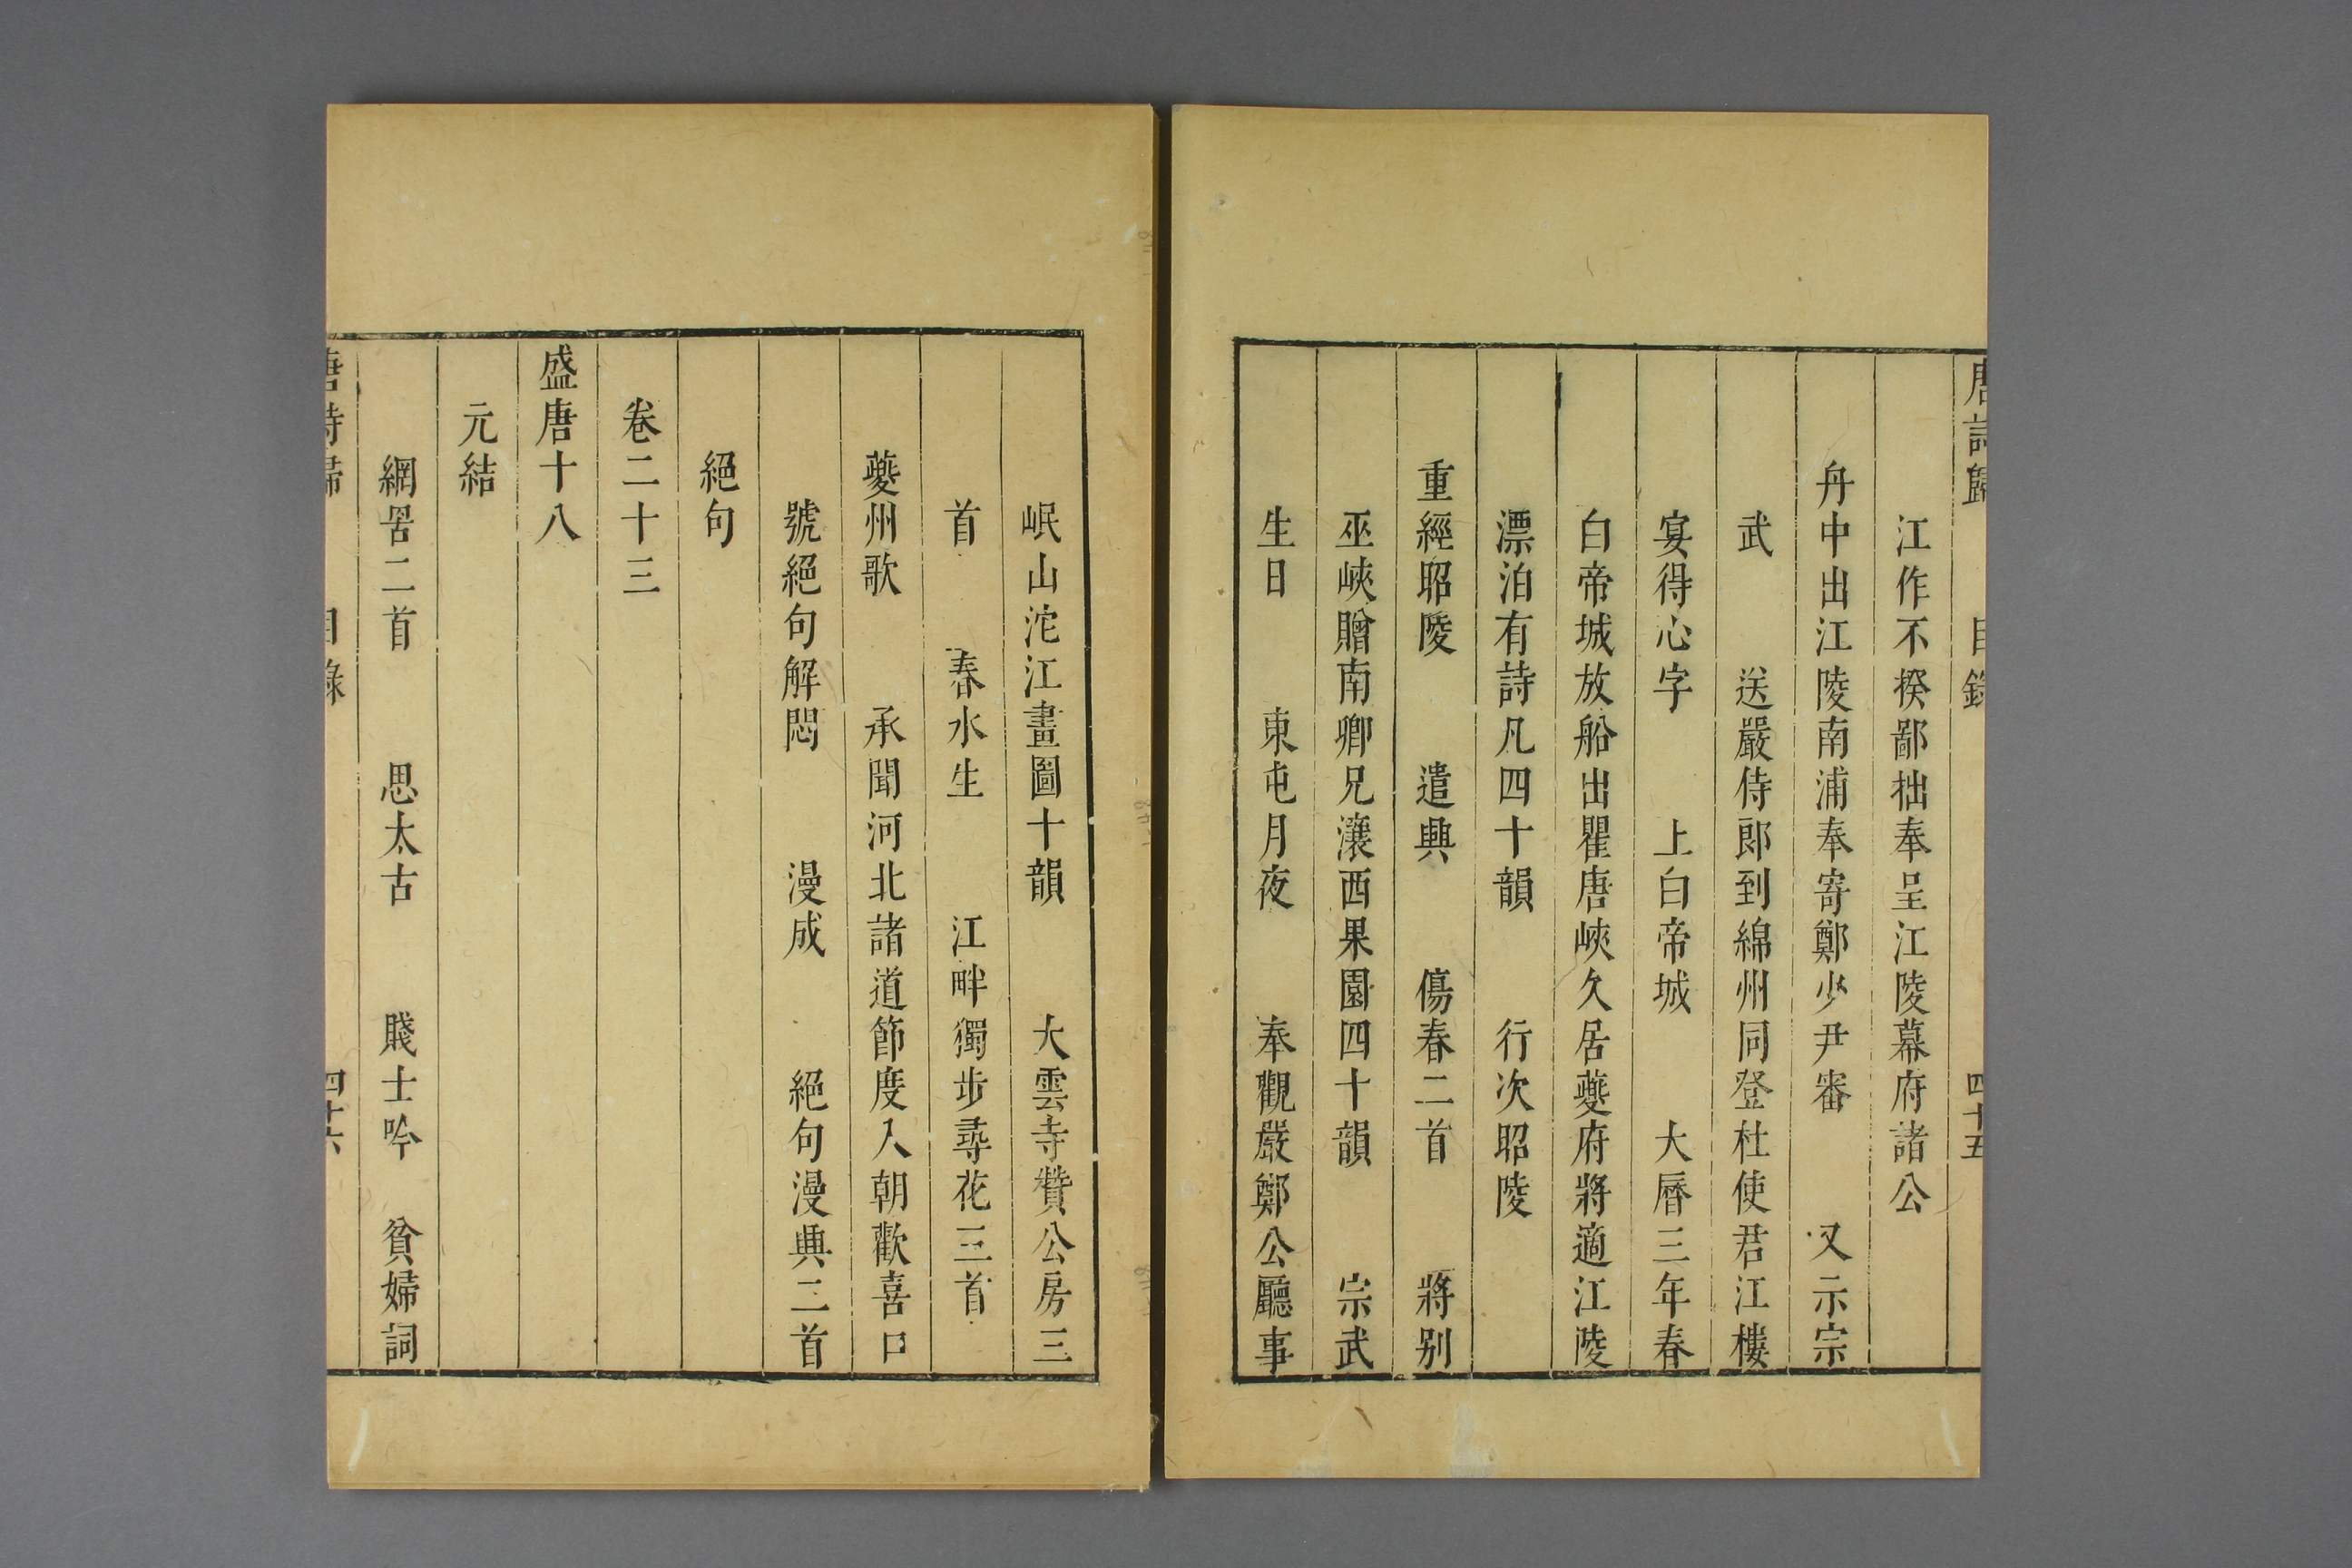 唐詩歸 目錄 四十五
江作不揆鄙拙奉呈江陵幕府諸公
舟中出江陵南浦奉寄鄭少尹審 又示宗
武 送嚴侍郎到綿州同登杜使君江樓
宴得心字 上白帝城 大曆三年春
白帝城放船出瞿唐峽久居夔府將適江陵
漂泊有詩凡四十韻 行次昭陵
重經昭陵 遣興 傷春二首 將別
巫峽贈南卿兄瀼西果園四十韻 宗武
生日 東屯月夜 奉觀嚴鄭公廳事
岷山沱江畫圖十韻 大雲寺贊公房三
首 春水生 江畔獨步尋花三首
夔州歌 承聞河北諸道節度入朝歡喜口
號絕句解悶 漫成 絕句漫興二首
絕句
卷二十三
盛唐十八
元結
網罟二首 思太古 賤士吟 貧婦詞
唐詩歸 目錄 四十六